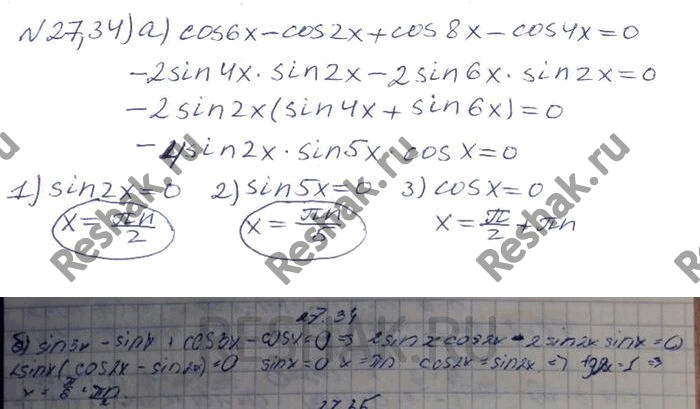 N27,34) а) cos6x-cos2x+cos8x-cos4x=0
-2sin4x·sin2x-2sin6x·sin2x=0
-2sin2x(sin4x+sin6x)=0
-4sin2x·sin5x·cosx=0
1) sin2x=0 2) sin5x=0 3) cosx=0
x=πn/2 x=πn/5 x=π/2+πn
Reshak.ru Reshak.ru Reshak.ru
27.34
б) sin3x-sinx+cos3x-cosx=0 => 2sinxcos2x-2sin2xsinx=0
2sinx(cos2x-sin2x)=0 sinx=0 x=πn cos2x=sin2x => tg2x=1 =>
x=π/8+πn/2
27.35